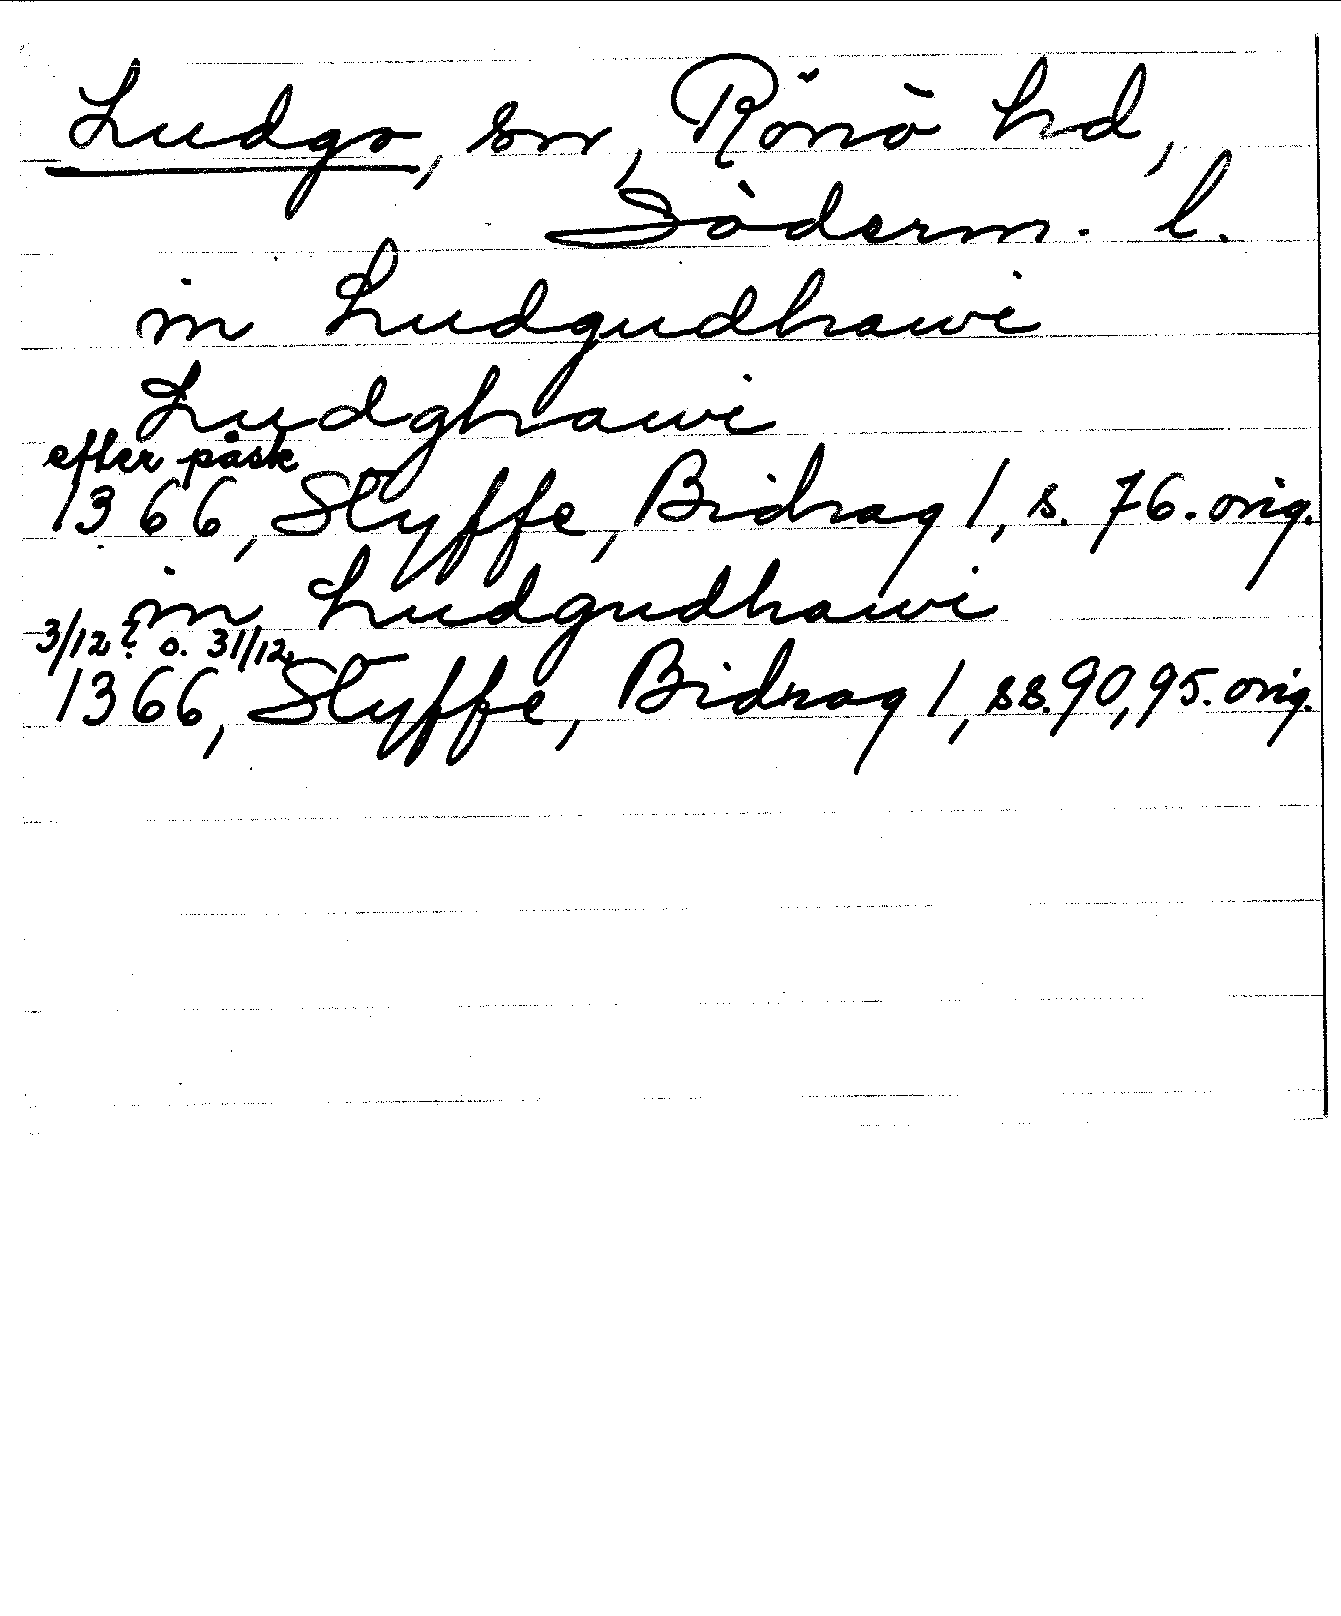 Ludgo, sn, Rönö hd,
Söderm. l.
in Ludgudhawi
Ludghawi
efter påsk
1366, Styffe, Bidrag 1, s. 76. orig.
in Ludgudhawi
3/12? o. 31/12,
1366, Styffe, Bidrag 1, ss. 90, 95. orig.